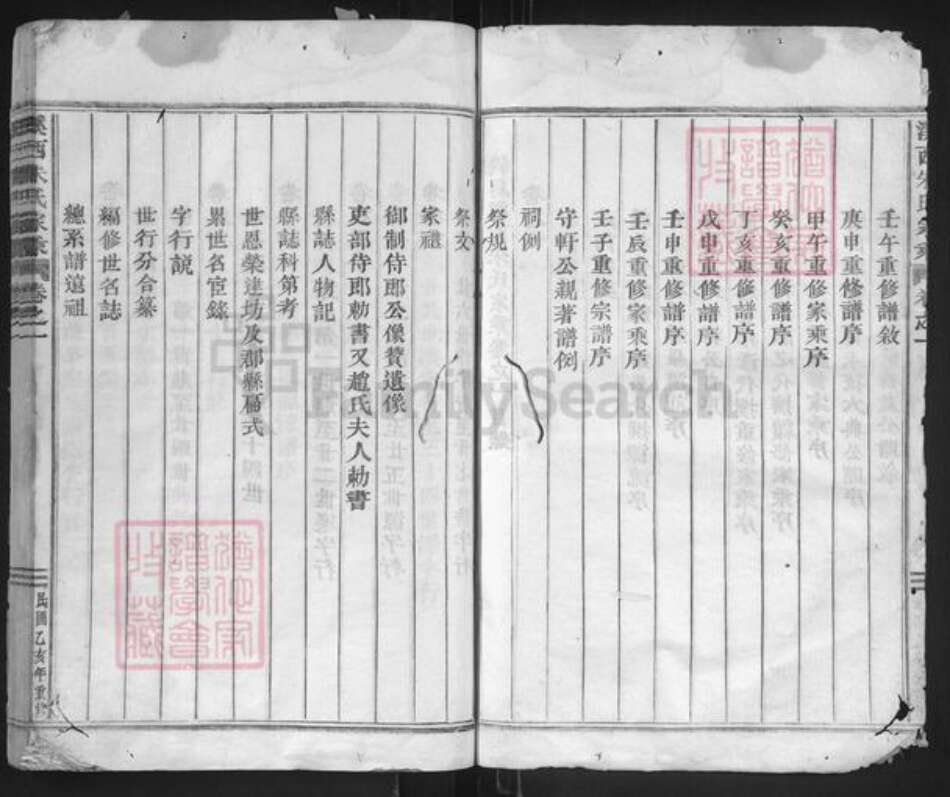 壬午重修譜敘
庚申重修譜序
甲午重修家乘序
癸亥重修譜序
丁亥重修譜序
戊申重修譜序
壬申重修譜序
壬辰重修家乘序
壬子重修宗譜序
守軒公親著譜例
祠例
祭規
祭文
家禮
御制侍郎公像贊遺像
吏部侍郎勅書又趙氏夫人勅書
縣誌人物記
縣誌科第考
世恩榮達坊及郡縣匾式
累世名宦錄
字行説
世行分合纂
編修世名誌
總系譜遠祖
溪西朱氏家乘 卷之一
民國乙亥年重修
猶他家譜學會收藏
猶他家譜學會收藏
FamilySearch